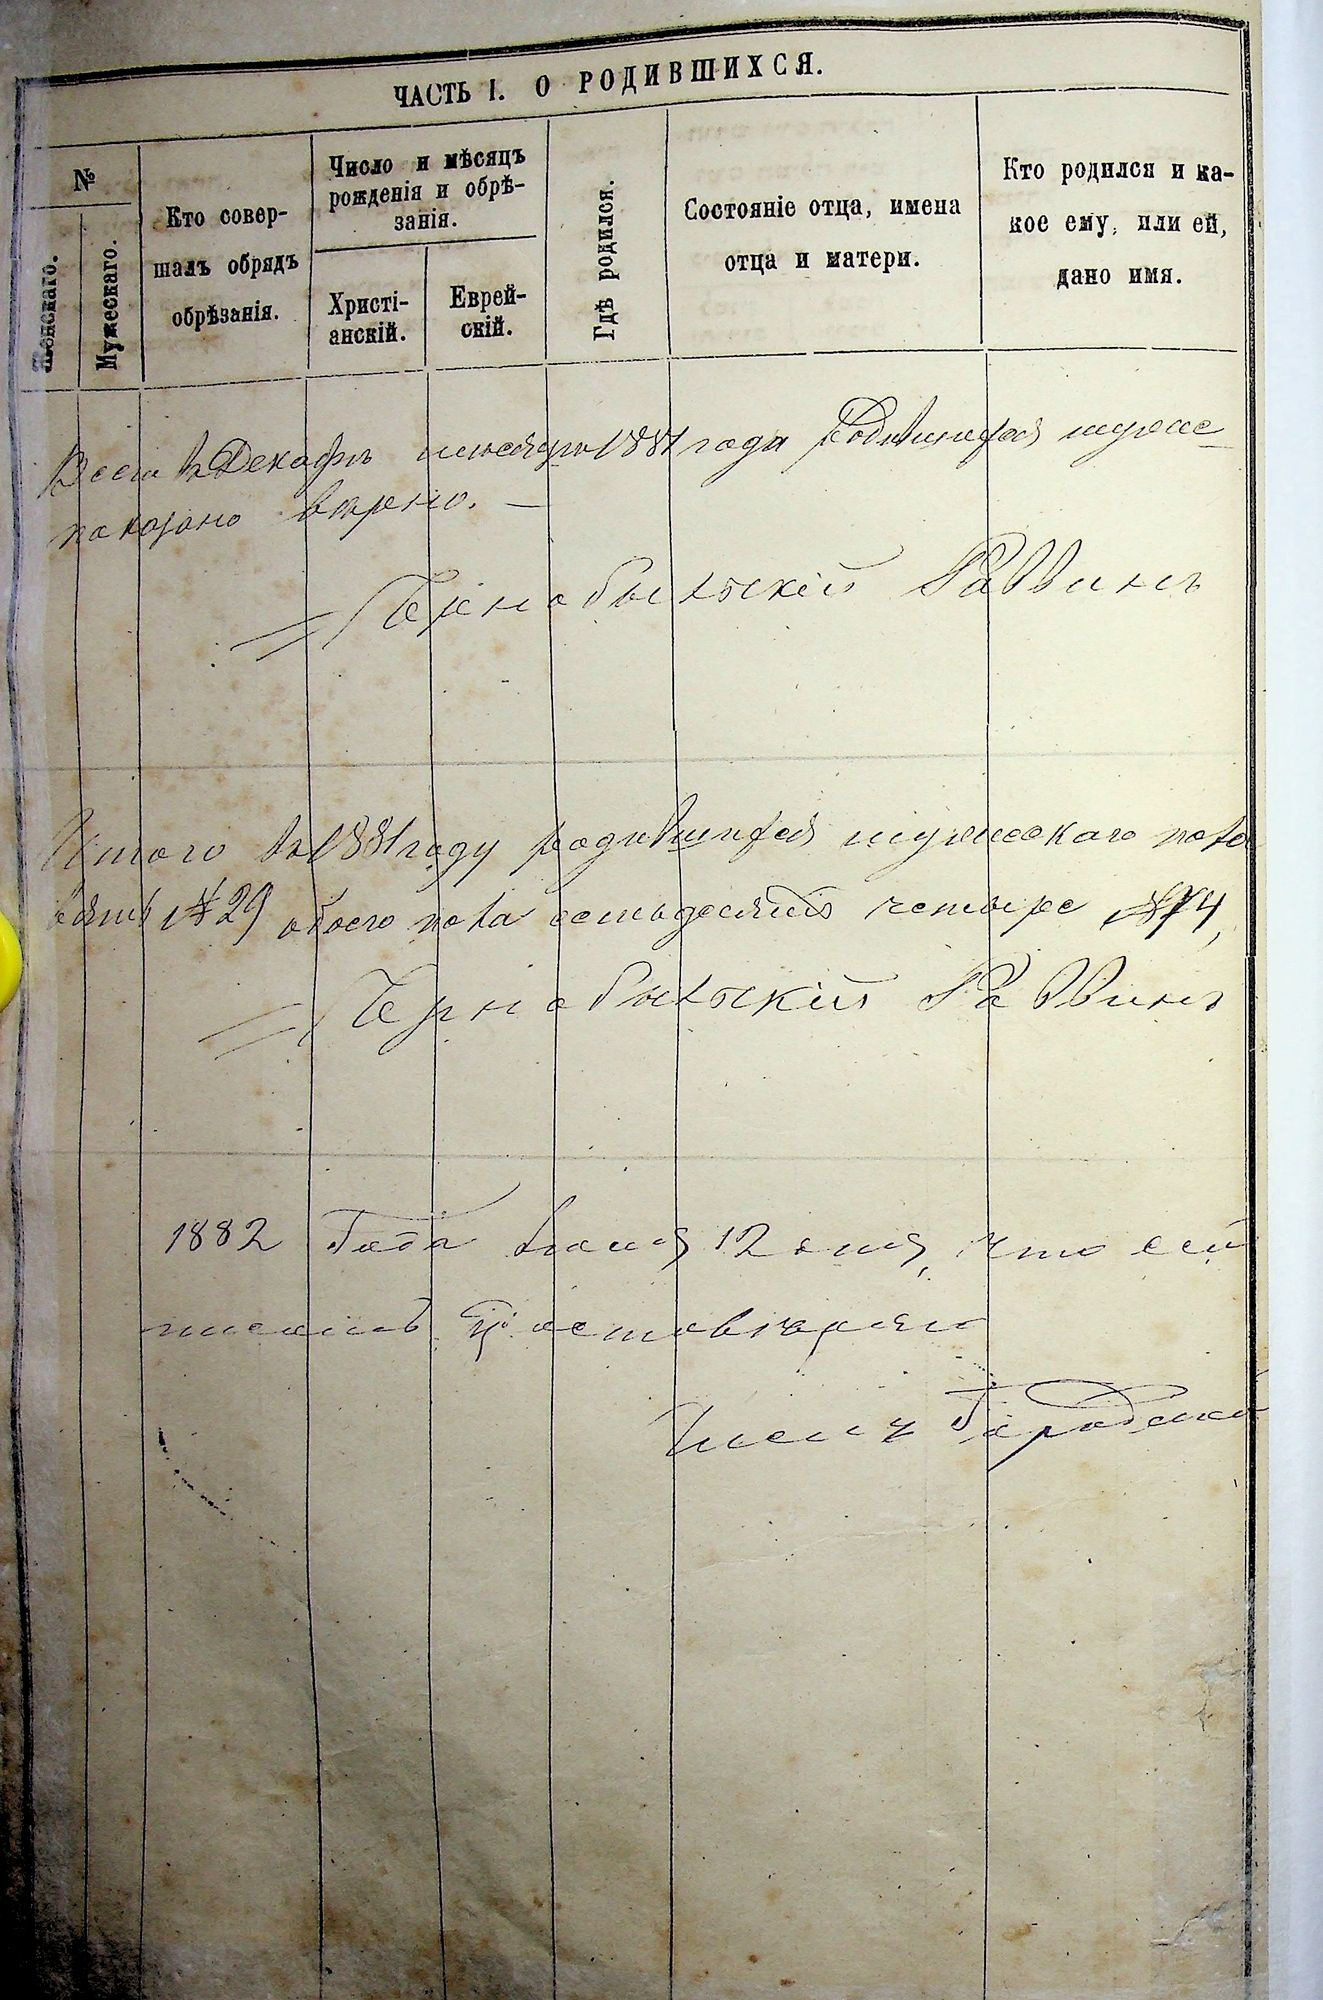 ЧАСТЬ I. О РОДИВШИХСЯ.
№
Женскаго.
Мужескаго.
Кто совер-
шалъ обрядъ
обрѣзанія.
Число и мѣсяцъ
рожденія и обрѣ-
занія.
Христі-
анскій.
Еврей-
скій.
Гдѣ родился.
Состояніе отца, имена
отца и матери.
Кто родился и ка-
кое ему, или ей,
дано имя.
Декабрѣ 1881 года родившихся
показано вѣрно. —
Чернобыльскій Раввинъ
Итого въ 1881 году родившихся мужескаго пола
29 обоего пола семьдесятъ четыре 74,
Чернобыльскій Раввинъ
1882 года 12 дня, что сей